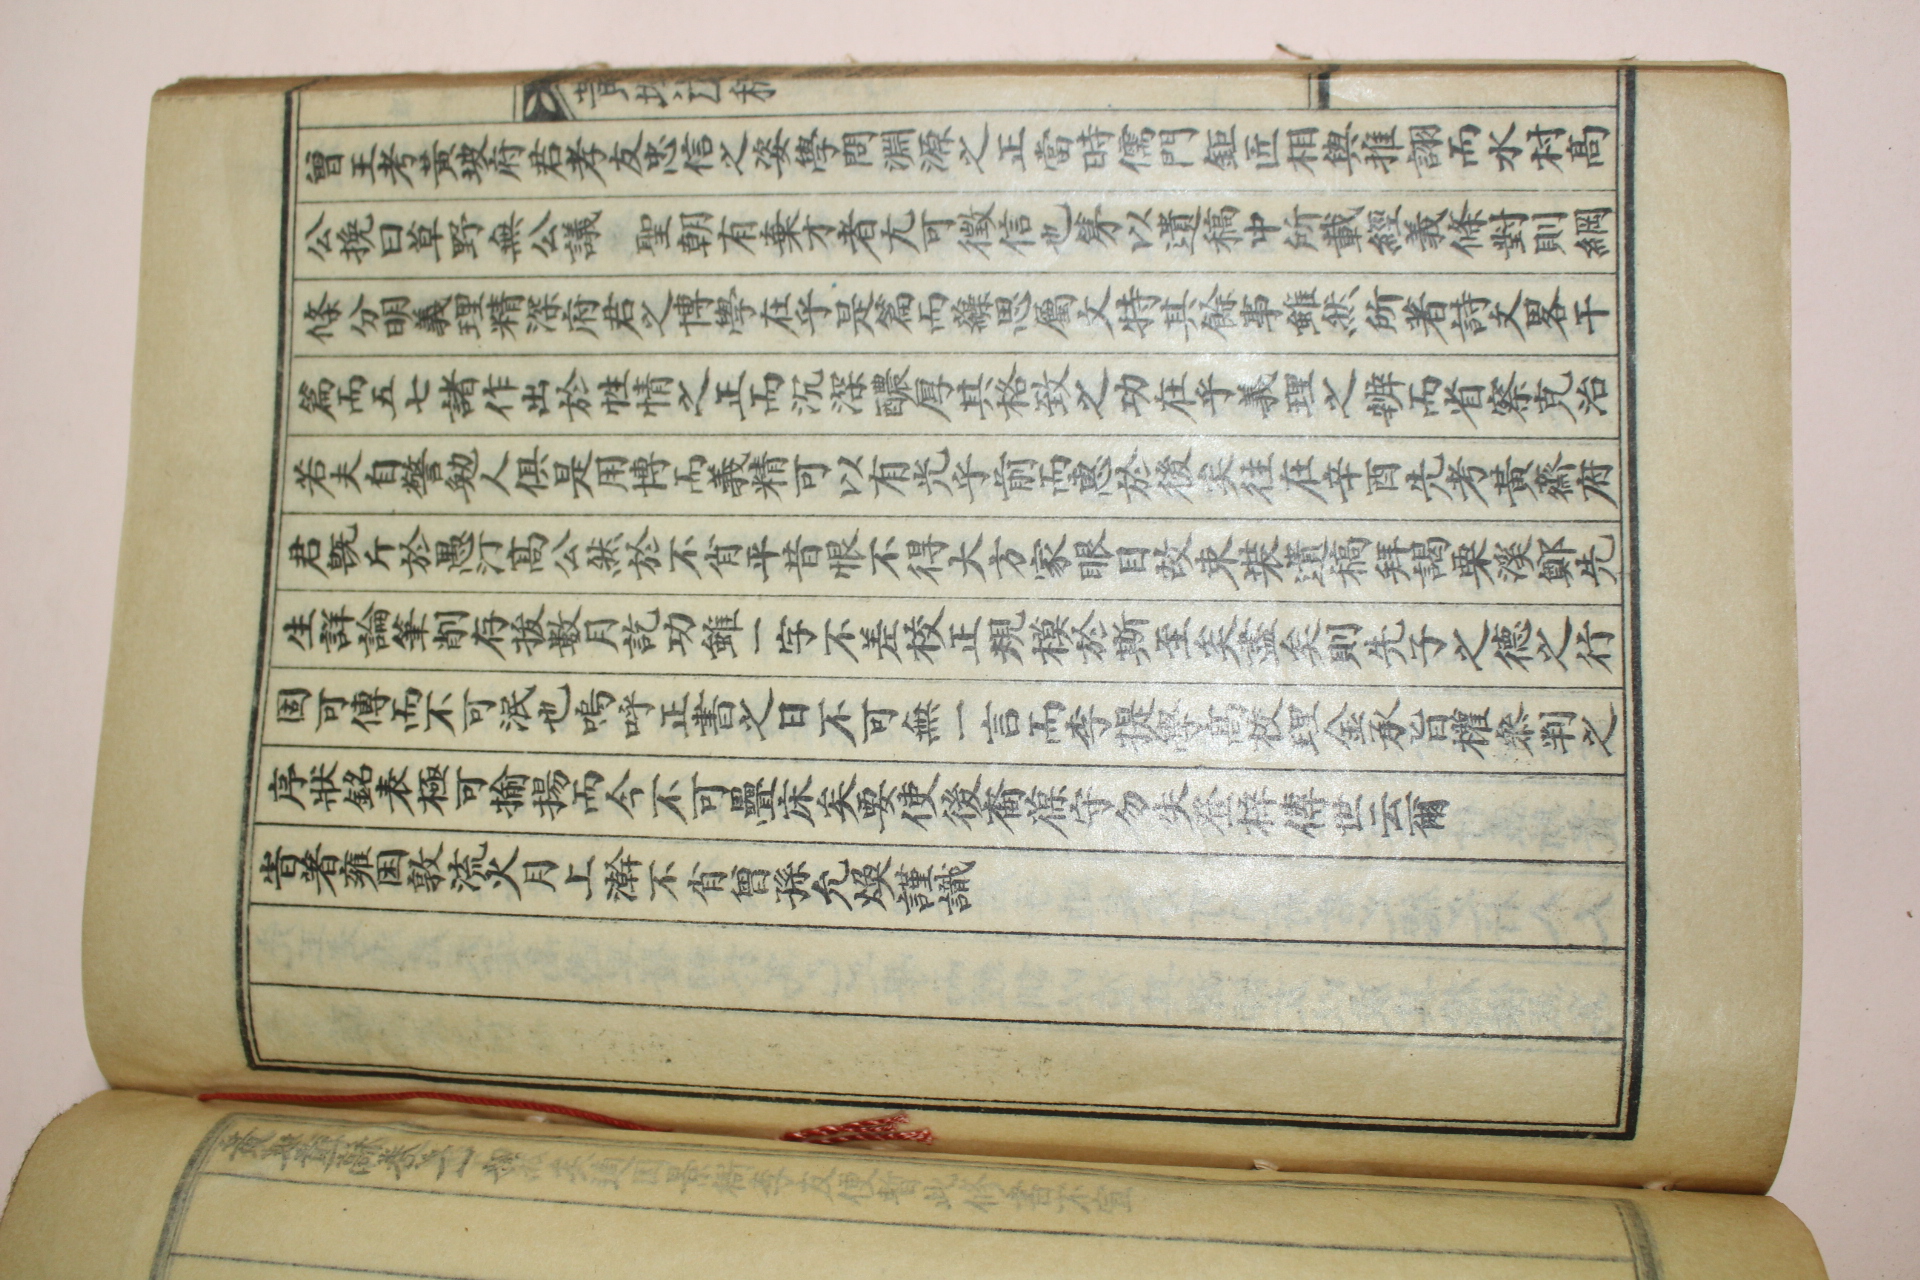 黃坡遺稿
曾王考黃坡府君孝友忠信之姿學問淵源之正當時儒門鉅匠相與推詡而水村高
公挽曰草野無公議 聖朝有棄才者尤可徵信也第以遺稿中所載經義條對則綱
條分明義理精深府君之博學在乎是篇而藻思屬文特其餘事雖然所著詩文畧干
篇而五七諸作出於性情之正而沉深醲厚其格致之功在乎義理之辨而省察克治
若夫自警勉人俱是用博而義精可以有光乎前而憗於後矣往在辛酉先考黃齋府
君旣斤於愚汀高公然於不肖平昔恨不得大方家眼目故束裝遺稿拜謁栗溪鄭先
生詳論筆削存拔數月訖功雖一字不差校正規模於斯至矣盡矣則先子之德之行
固可傳而不可泯也嗚呼正書之日不可無一言而李提學高校理金承旨權參判之
序狀銘表極可揄揚而今不可疊床矣要使後裔葆守勿失奎梓傳世云爾
昔著雍困敦流火月上澣不肖曾孫允煥謹識